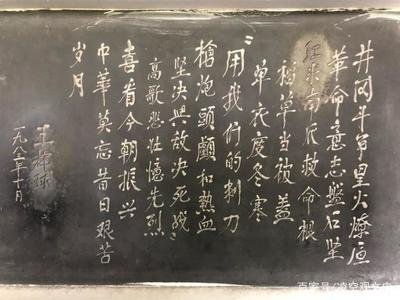 井冈斗争星火燎原
革命意志盘石坚
红米南瓜救命根
稻草当被盖
单衣度冬寒
“用我们的刺刀
枪炮头颅和熱血
坚决与敌决死战”
高歌悲壮憶先烈
喜看今朝振兴
中華莫忘昔日艰苦
岁月
一九八三年十月
百家号/凌空观文史